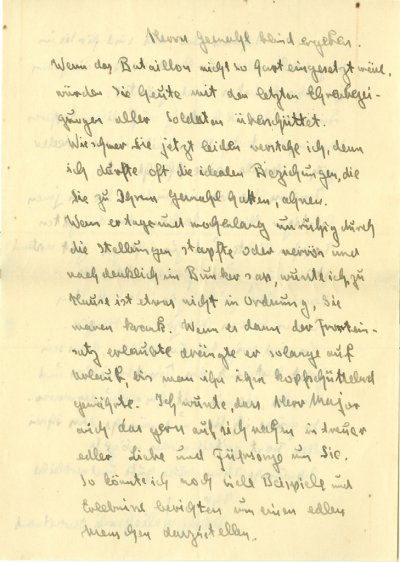 Herrn Gemahl blind ergeben.
Wenn das Bataillon nicht so hart eingesetzt wäre,
würden Sie heute mit den letzten Ehrenbezei-
gungen aller Soldaten überschüttet.
Wie schwer Sie jetzt leiden verstehe ich, denn
ich durfte oft die idealen Beziehungen, die
Sie zu Ihrem Gemahl hatten, ahnen.
Wenn er tage und nächtelang unruhig durch
die Stellungen stapfte oder nervös und
nachdenklich im Bunker sass, wusste ich, zu
Hause ist etwas nicht in Ordnung, Sie
waren krank. Wenn es dann der Frontein-
satz erlaubte drängte er solange auf
Urlaub, bis man ihn ihm kopfschüttelnd
gewährte. Ich wusste, dass Herr Major
auch das gern auf sich nahm in treuer
edler Liebe und Fürsorge um Sie.
So könnte ich noch viele Beispiele und
Erlebnisse berichten um einen edlen
Menschen darzustellen.